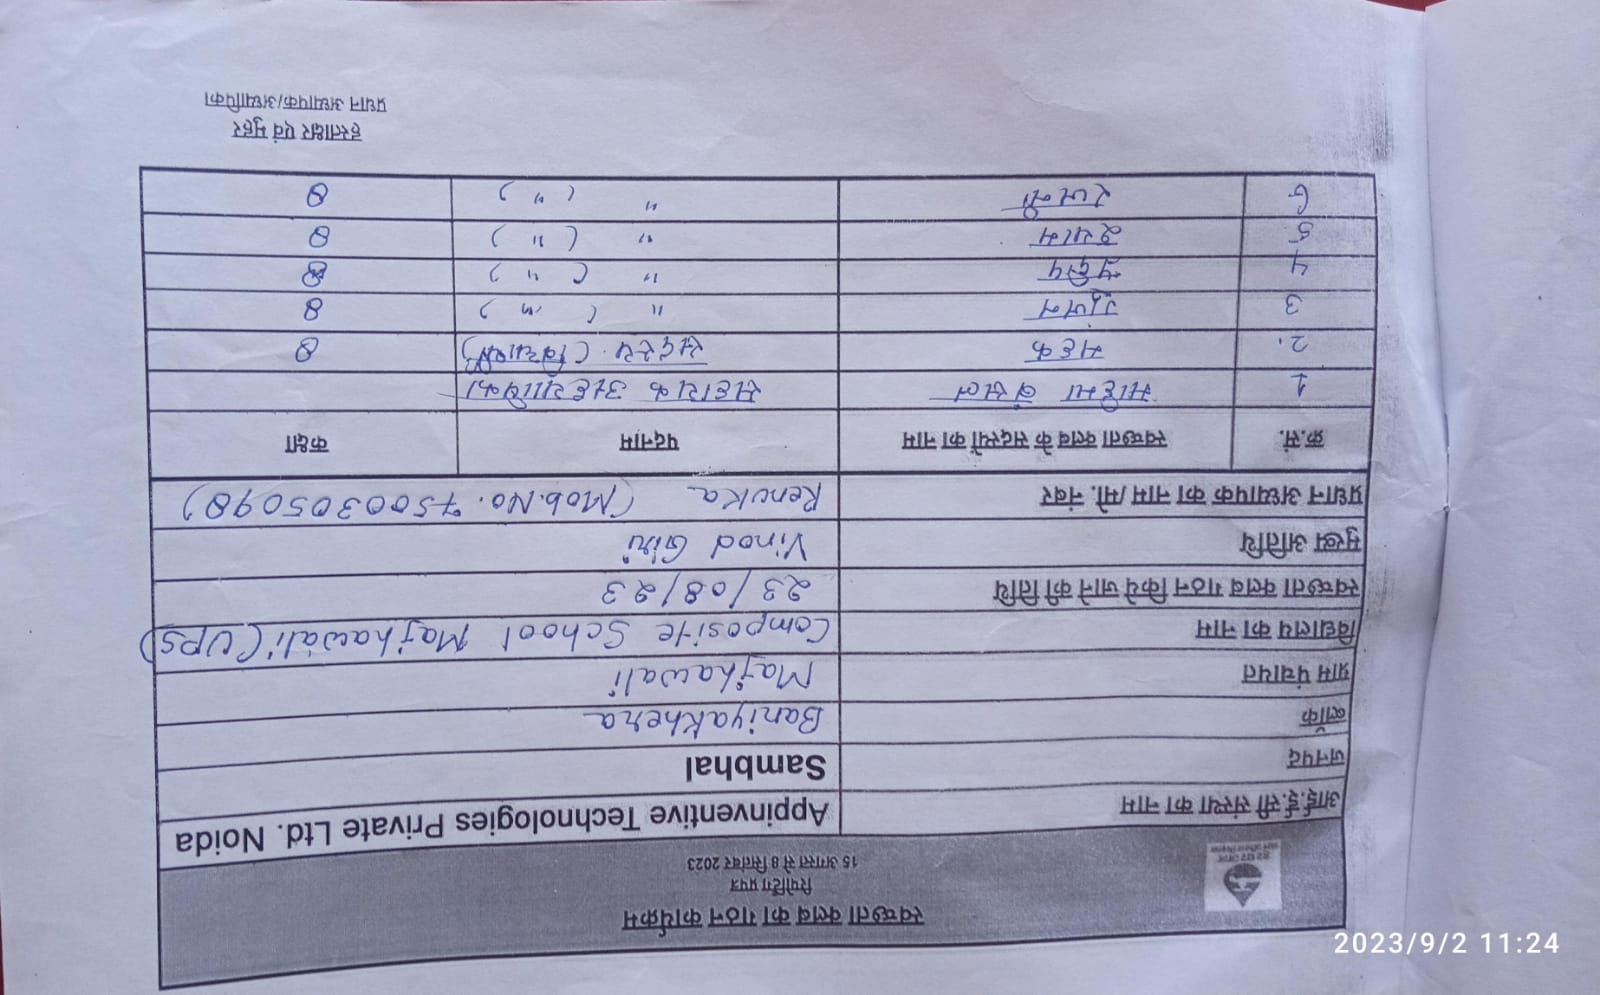 स्वच्छता क्लब का गठन कार्यक्रम
रिपोर्टिंग प्रपत्र
15 अगस्त से 8 सितंबर 2023
आई.ई.सी संस्था का नाम Appinventive Technologies Private Ltd. Noida
जनपद Sambhal
ब्लॉक Baniyakhera
ग्राम पंचायत Majhawali
विद्यालय का नाम Composite School Majhawali (UPS)
स्वच्छता क्लब गठन किये जाने की तिथि 23/08/23
मुख्य अतिथि Vinod Giri
प्रधान अध्यापक का नाम /मो. नंबर Renuka (Mob.No. 7500305098)
क्र.सं. स्वच्छता क्लब के सदस्यों का नाम पदनाम कक्षा
1 महिमा बंसल सहायक अध्यापिका
2. महक सदस्य (विद्यार्थी) 8
3 गुंजन " ( " ) 8
4 " ( " ) 8
5 श्याम " ( " ) 8
6 रजनी " ( " ) 8
हस्ताक्षर एवं मुहर
प्रधान अध्यापक/अध्यापिका
2023/9/2 11:24